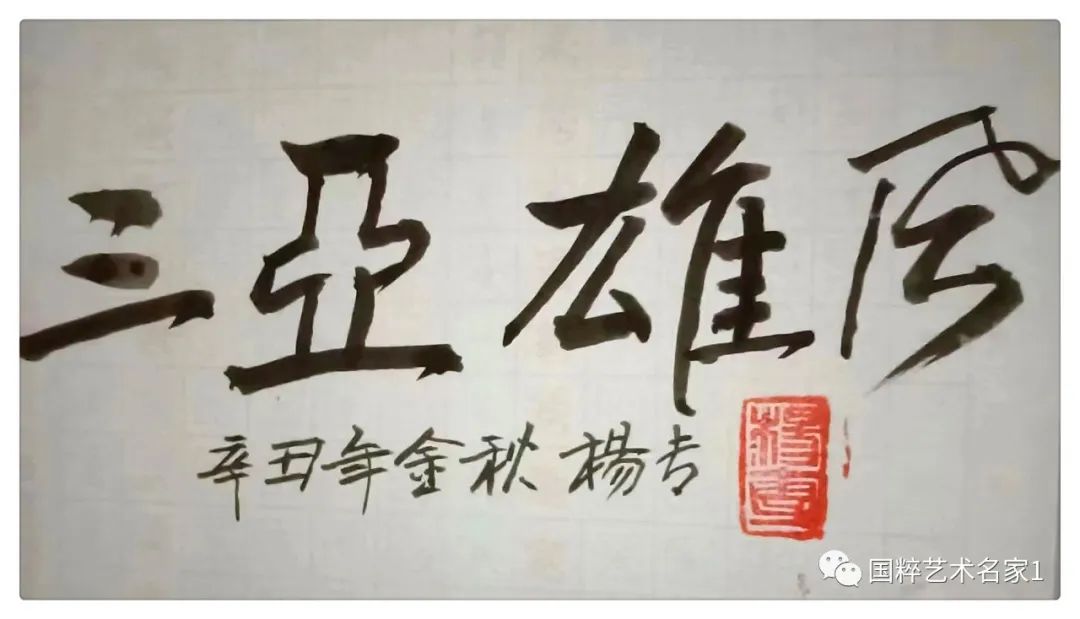 三亞雄风
辛丑年金秋 楊吉
国粹艺术名家1